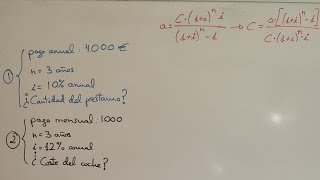 a = C·(1+i)^n·i / (1+i)^n-1 → C = a·[(1+i)^n-1] / (1+i)^n·i
① pago anual: 4000 €
n = 3 años
i = 10% anual
¿Cantidad del préstamo?
② pago mensual: 1000
n = 3 años
i = 12% anual
¿Coste del coche?